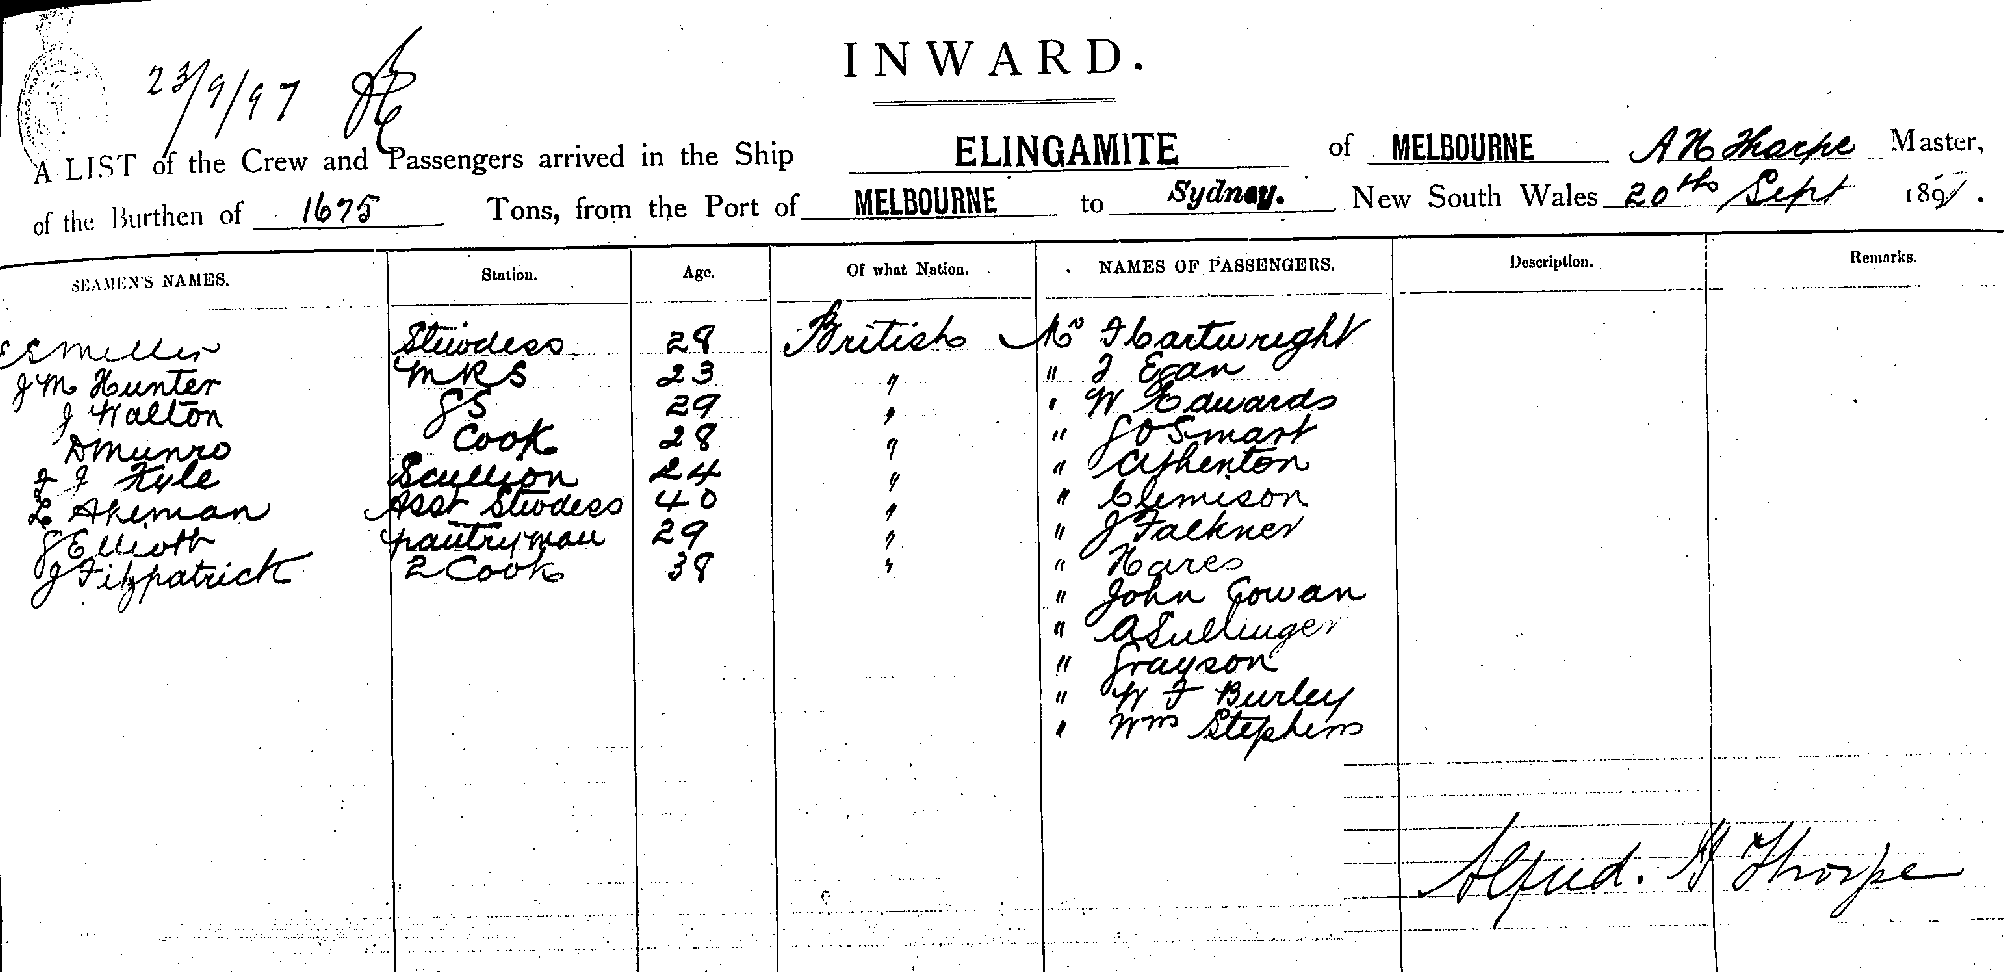 INWARD.
23/9/97
A LIST of the Crew and Passengers arrived in the Ship ELINGAMITE of MELBOURNE A H Thorpe Master,
of the Burthen of 1675 Tons, from the Port of MELBOURNE to Sydney. New South Wales 20th Sept 1897.
SEAMEN'S NAMES. Station. Age. Of what Nation. NAMES OF PASSENGERS. Description. Remarks.
Miller Stewdess 28 British Mr F Cartwright
J M Hunter MRS 23 " " J Egan
J Walton GS 29 " " W Edwards
D Munro Cook 28 " " G O Smart
F J Kyle Scullion 24 " "
L Akeman Asst Stewdess 40 " " Clemison
G Elliott pantryman 29 " " J Falkner
J Fitzpatrick 2 Cook 38 " " Hares
" John Cowan
" A Sullinger
" Grayson
" W F Burley
" Wm Stephens
Alfred. H Thorpe